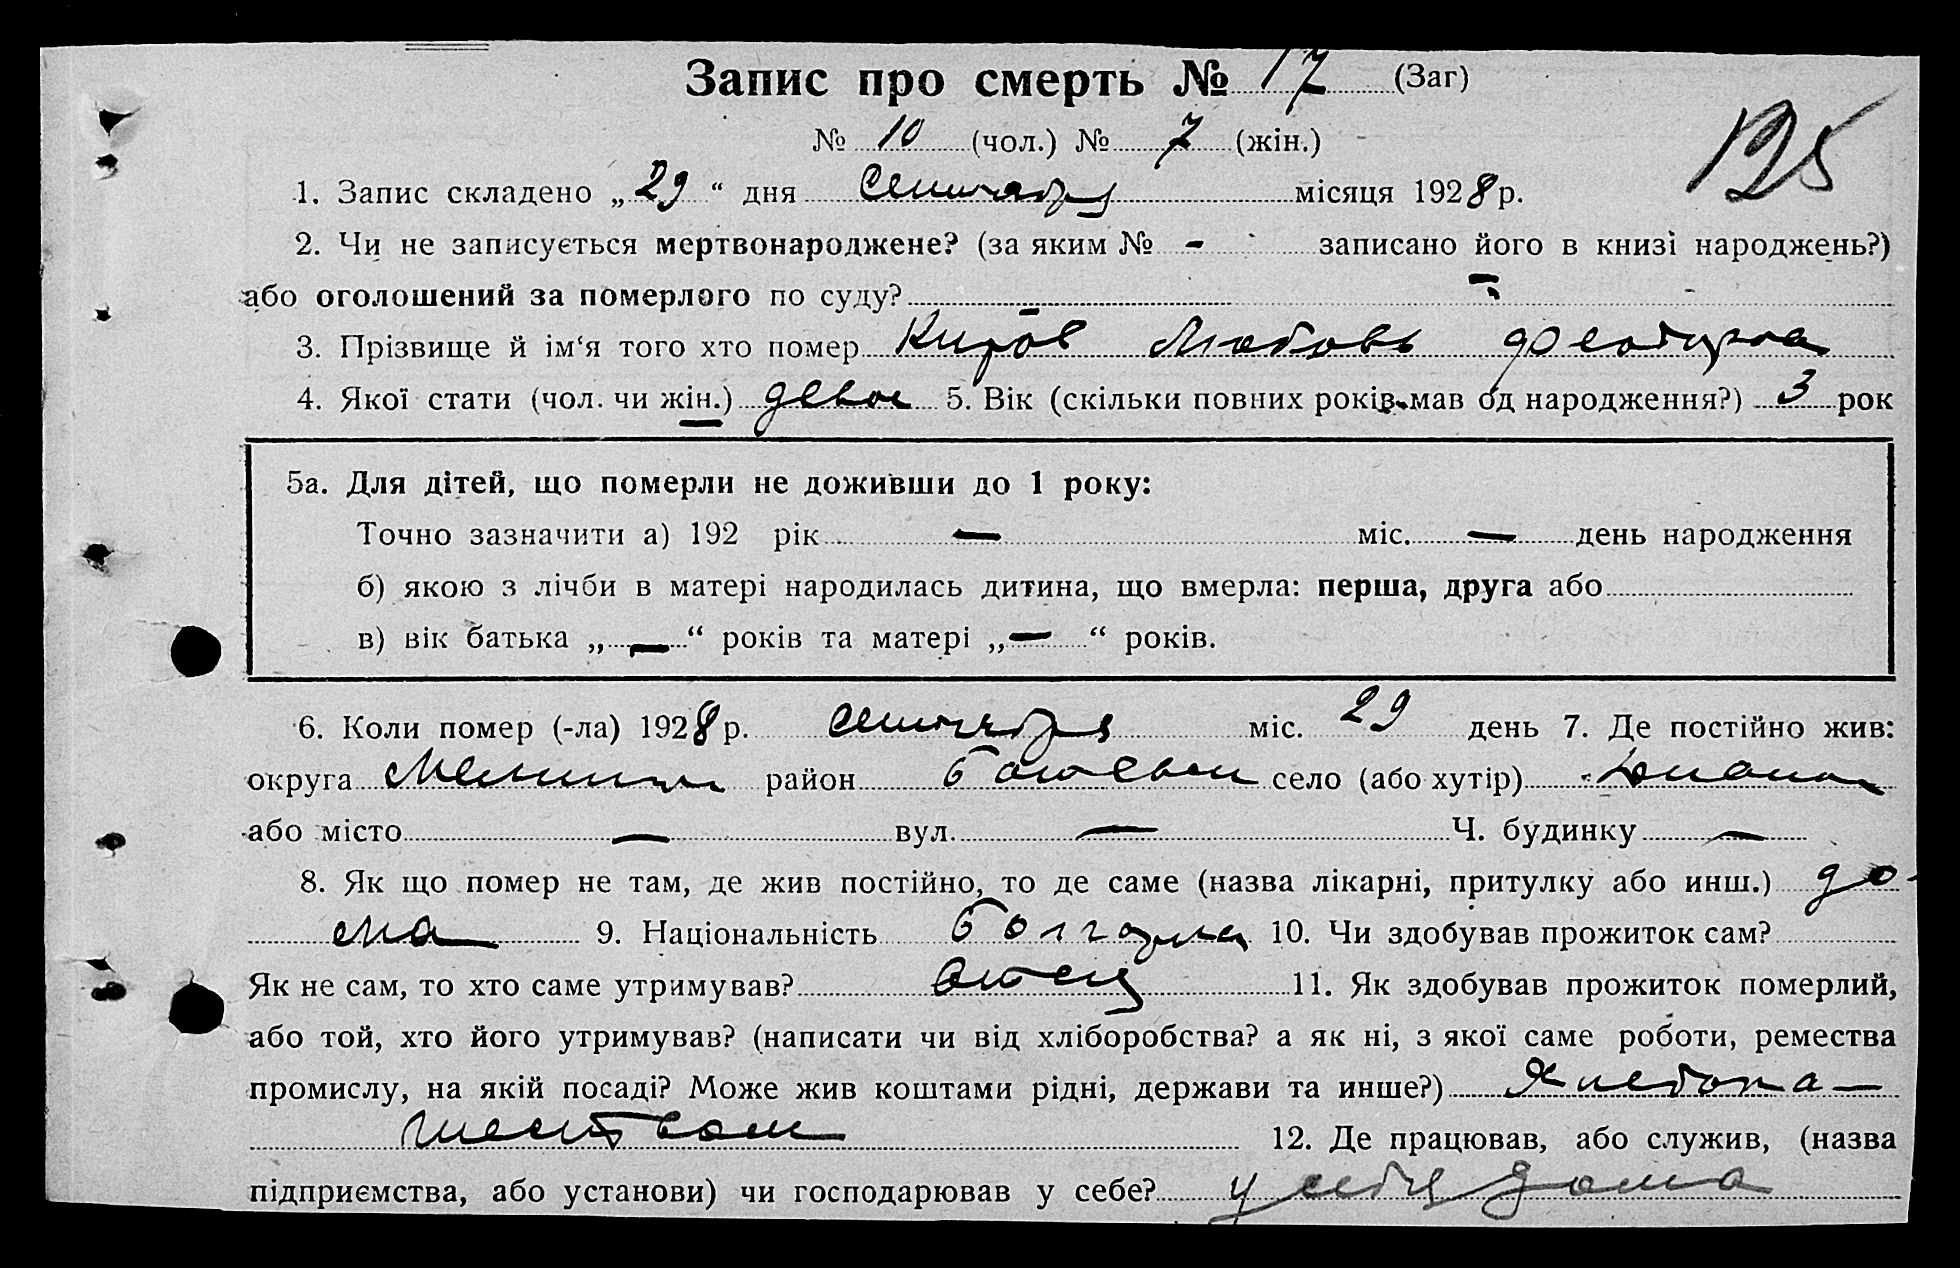 Запис про смерть № 17 (Заг)
125
№ 10 (чол.) № 7 (жін.)
1. Запис складено „29“ дня Сентября місяця 1928 р.
2. Чи не записується мертвонароджене? (за яким № - записано його в книзі народжень?)
або оголошений за померлого по суду?
3. Прізвище й ім‘я того хто помер Киров Любовь
4. Якої стати (чол. чи жін.) 5. Вік (скільки повних років мав од народження?) 3 рок
5а. Для дітей, що померли не доживши до 1 року:
Точно зазначити а) 192 рік — міс. — день народження
б) якою з лічби в матері народилась дитина, що вмерла: перша, друга або
в) вік батька „—“ років та матері „—“ років.
6. Коли помер (-ла) 1928 р. сентября міс. 29 день 7. Де постійно жив:
округа район село (або хутір)
або місто — вул. — Ч. будинку —
8. Як що помер не там, де жив постійно, то де саме (назва лікарні, притулку або инш.) до-
ма 9. Національність болгарка 10. Чи здобував прожиток сам?
Як не сам, то хто саме утримував? отец 11. Як здобував прожиток померлий,
або той, хто його утримував? (написати чи від хліборобства? а як ні, з якої саме роботи, ремества
промислу, на якій посаді? Може жив коштами рідні, держави та инше?) Хлебопа-
шеством 12. Де працював, або служив, (назва
підприємства, або установи) чи господарював у себе? у себя дома